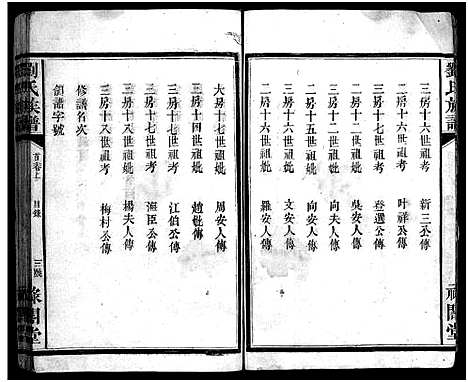 劉氏族譜
三房十六世祖考 新三公傳
二房十六世祖考 叶祥公傳
二房十六世祖考 登選公傳
二房十六世祖妣 吳安人傳
二房十六世祖妣 向夫人傳
二房十五世祖妣 向安人傳
二房十六世祖妣 文安人傳
二房十六世祖妣 羅安人傳
大房十七世祖妣 周安人傳
三房十四世祖妣 趙妣傳
三房十七世祖考 江伯公傳
三房十七世祖考 海臣公傳
三房十八世祖妣 楊夫人傳
三房十八世祖考 梅村公傳
修譜名次
領譜字號
劉氏族譜
首卷上
目錄
三
閣堂